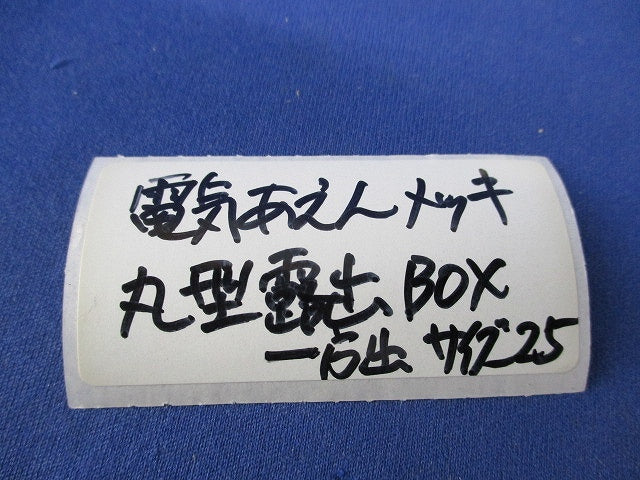 電気あえんメッキ
丸型露出BOX
一方出 サイズ25